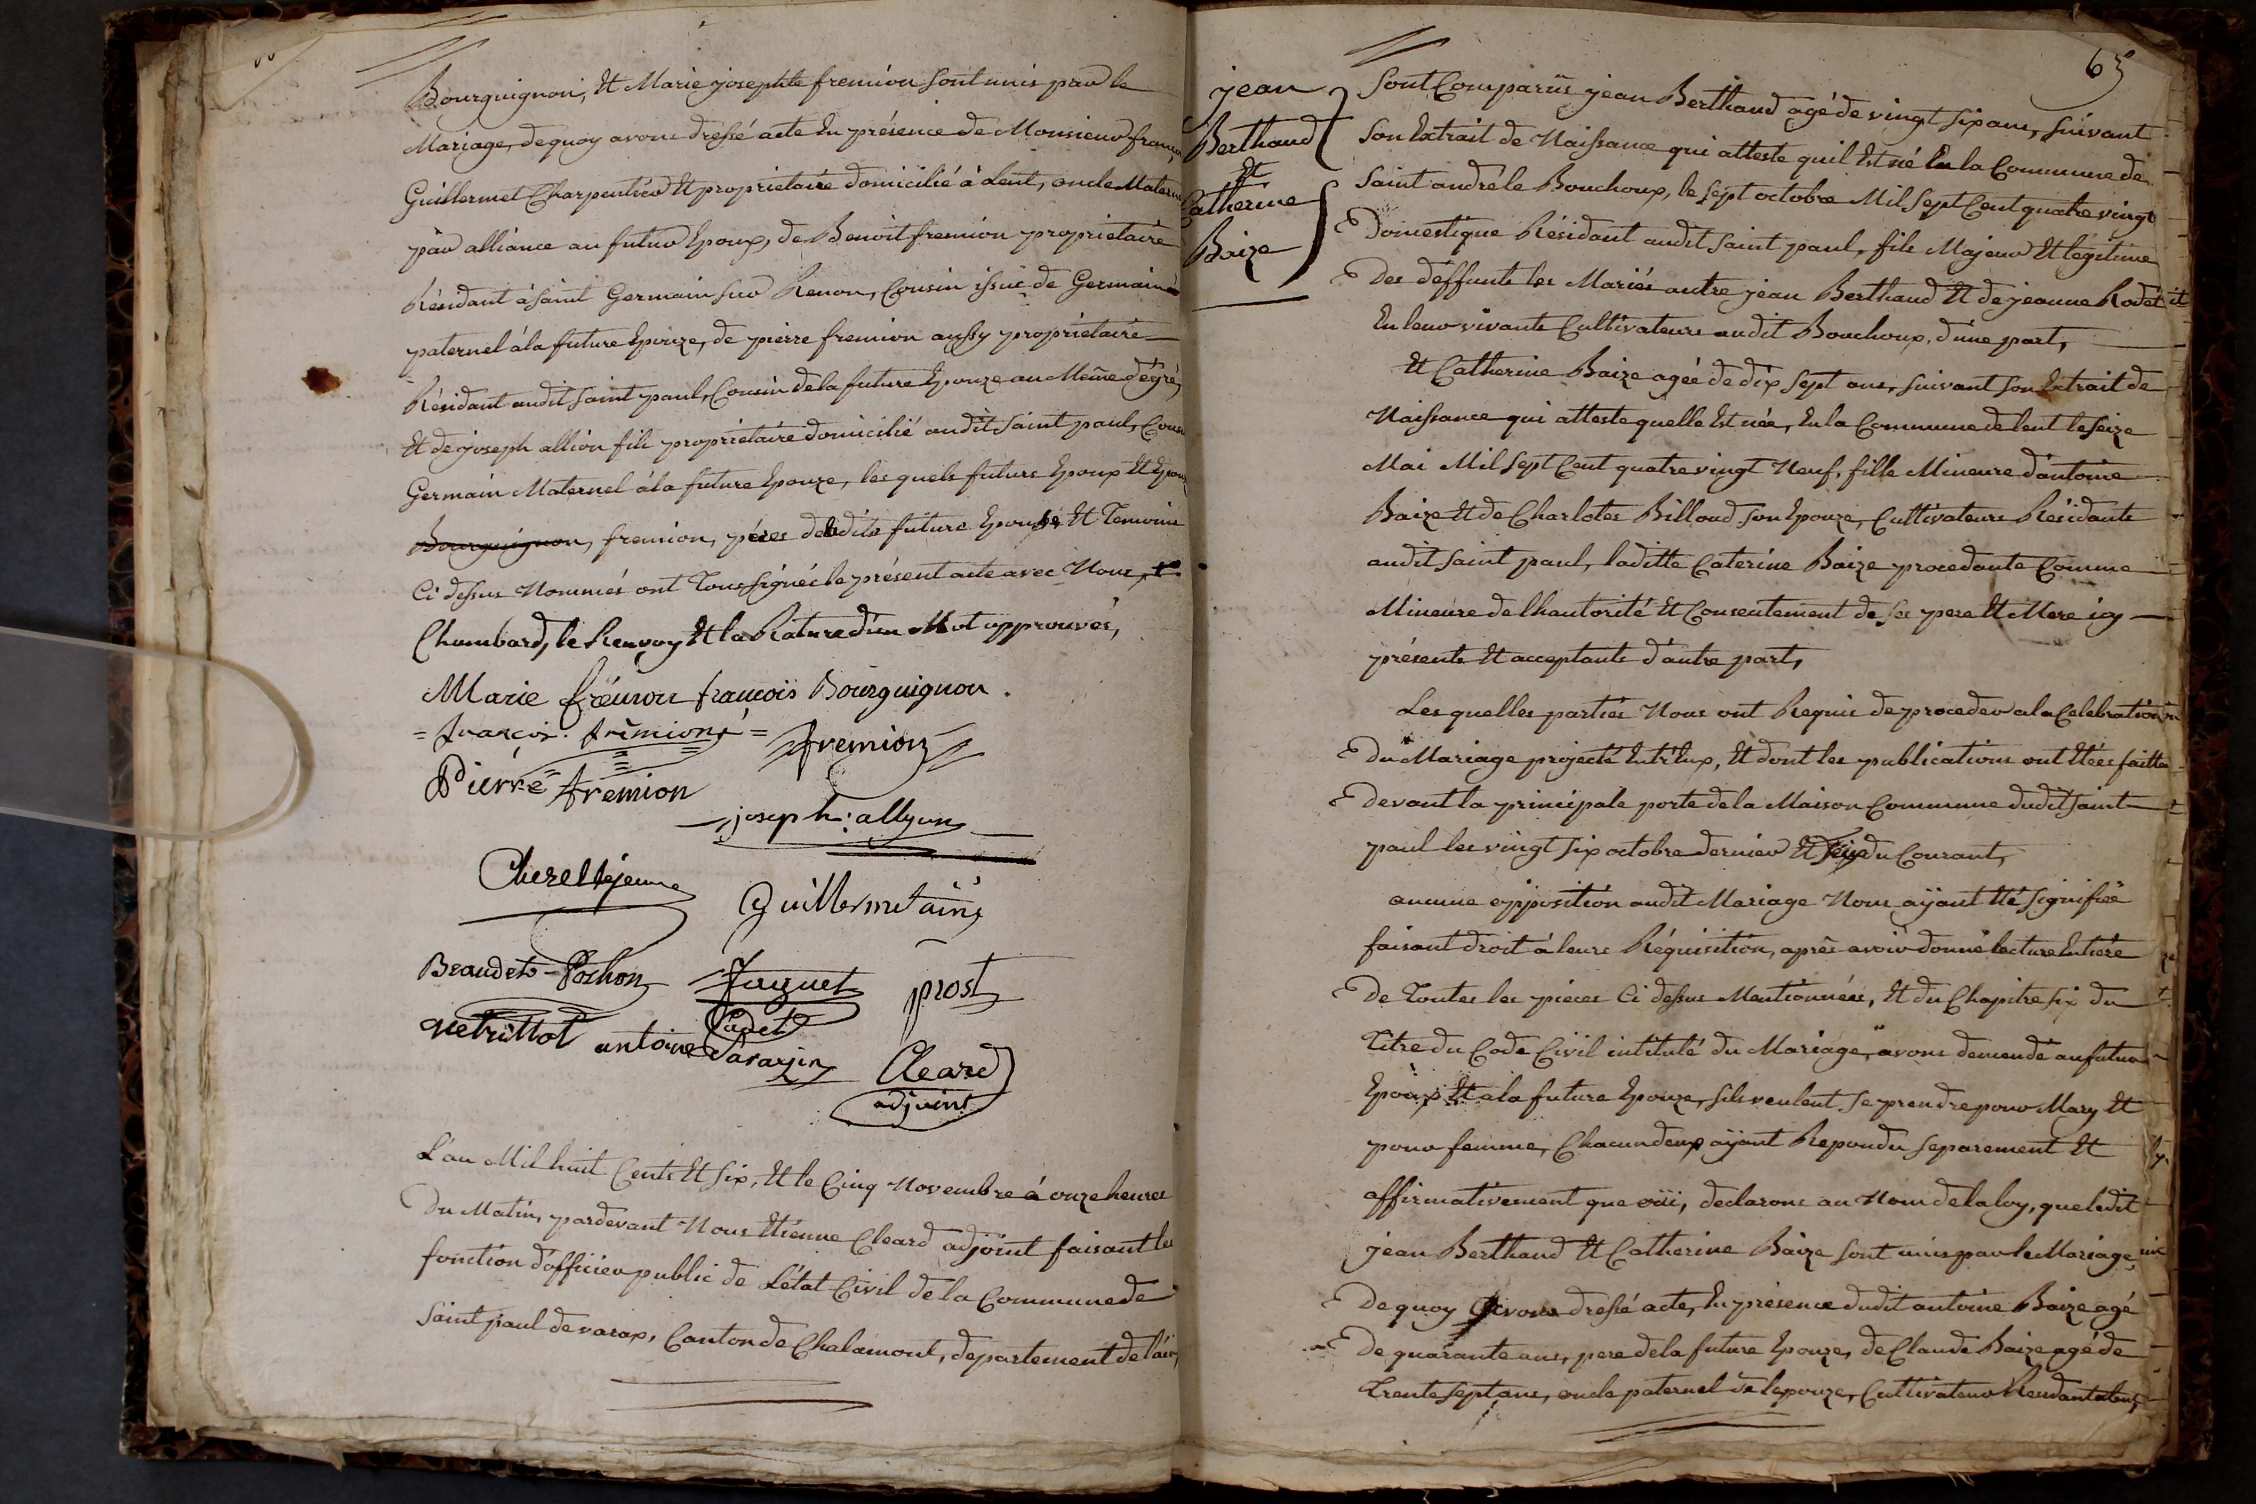 Bourguignon, Et Marie josephte fremion sont unis par le
Mariage, de quoy avons dressé acte En présence de Monsieur françois
Guillermet Charpentier Et propriétaire domicilié à Lent, oncle Maternel
par alliance au futur Epoux, de Benoit fremion propriétaire
Résidant à saint Germain sur Renon, Cousin issue de Germain
paternel à la future Epouze, de pierre fremion aussy propriétaire
Résidant audit saint paul, Cousin de la future Epouze au Même dégré,
Et de joseph allion fils propriétaire domicilié audit saint paul, Cousin
Germain Maternel à la future Epouze, les quels futurs Epoux Et Epouze
Bourguignon, fremion, péres desdits future Epoux Et Temoins
Ci dessus Nommés ont Tous signés le présent acte avec Nous,
Chambard, le Renvoy Et la Rature d'un Mot approuvés,
Marie frémion françois Bourguignon.
= françois frémion = fremion
Pierre fremion
joseph allyon
Cherel lejeune
Guillermet aîné
Beaudet Pochon Juguet prost
Cadet
antoine Sarazin Cleard
adjoint
L'an Mil huit Cents Et six, Et le Cinq Novembre à onze heures
Du Matin, pardevant Nous Etienne Cleard adjoint faisant les
fonction d'officier public de L'état Civil de la Commune de
Saint paul de varax, Canton de Chalamont, département de l'ain,
65
jean
Berthaud
Et
Catherine
Baize
Sont Comparûs jean Berthaud agé de vingt six ans, suivant
Son Extrait de Naissance qui atteste quil Est né En la Commune de
Saint andré le Bouchoux, le sept octobre Mil Sept Cent quatre vingt
Domestique Résidant audit saint paul, fils Majeur Et légitime
Des deffunts les Mariés autre jean Berthaud Et de jeanne Rodet
En leur vivants Cultivateurs audit Bouchoux, d'une part,
Et Catherine Baize agée de dix sept ans, suivant son Extrait de
Naissance qui atteste quelle Est née, En la Commune de lent le seize
Mai Mil Sept Cent quatre vingt Neuf, fille Mineure d'antoine
Baize Et de Charlotes Billoud son Epouze, Cultivateurs Résidants
audit saint paul, laditte Caterine Baize procedante Comme
Mineure de lhautorité Et Consentement de ses pere Et Mere icy
présents Et acceptants d'autre part,
Les quelles parties Nous ont Requis de proceder a la Celebration
du Mariage projecté Entr'Eux, Et dont les publications ont Etées faitte
Devant la principale porte de la Maison Commune dudit saint
paul les vingt six octobre dernier Et du Courant,
aucune opposition audit Mariage Nous aÿant Eté signifiée
faisant droit à leurs Réquisition, après avoir donné lecture Entiére
De Toutes les pieces Ci dessus Mentionnées, Et du Chapitre six du
Titre du Code Civil intitulé du Mariage, avons demendé au futur
Epoux Et a la future Epouze, sils veulent se prendre pour Mary Et
pour femme, Chacun d'eux aÿant Repondu separement Et
affirmativement que oüi, declarons au Nom de la loy, que ledit
jean Berthaud Et Catherine Baize sont unis par le Mariage,
De quoy avons dressé acte, En présence dudit antoine Baize agé
De quarante ans, pere de la future Epouze, de Claude Baize agé de
Trente sept ans, oncle paternel de lepouze, Cultivateur Residant a lent,